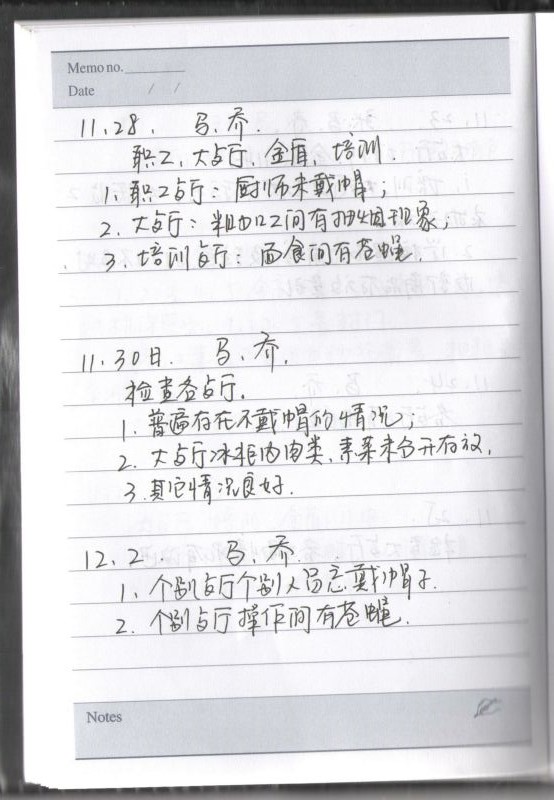 Memo no.
Date / /
11.28. 马、乔.
职工、大餐厅、金盾、培训.
1、职工餐厅：厨师未戴帽；
2、大餐厅：粗加工间有抽烟现象；
3、培训餐厅：面食间有苍蝇.
11.30日. 马、乔.
检查各餐厅.
1、普遍存在不戴帽的情况；
2、大餐厅冰柜内肉类、素菜未分开存放.
3、其它情况良好.
12.2 马、乔.
1、个别餐厅个别人员忘戴帽子.
2、个别餐厅操作间有苍蝇.
Notes